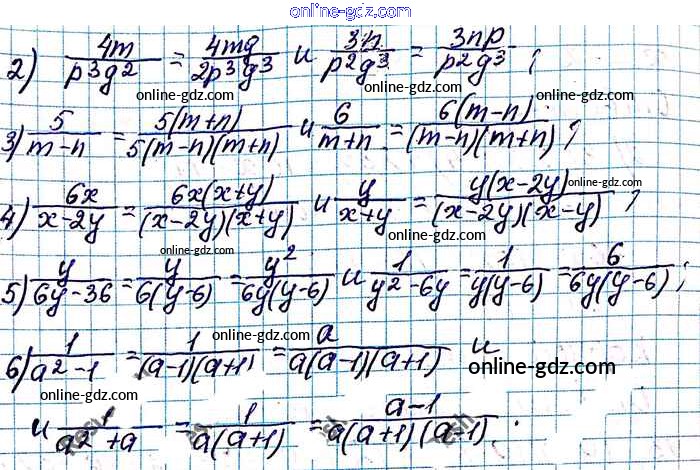 online-gdz.com
2) 4m/p³g² = 4mg/2p³g³ и 3n/p²g³ = 3np/p²g³ ;
online-gdz.com online-gdz.com
3) 5/m-n = 5(m+n)/5(m-n)(m+n) и 6/m+n = 6(m-n)/(m-n)(m+n) ;
online-gdz.com online-gdz.com
4) 6x/x-2y = 6x(x+y)/(x-2y)(x+y) и y/x+y = y(x-2y)/(x-2y)(x-y) ;
online-gdz.com
online-gdz.com online-gdz.com
5) y/6y-36 = y/6(y-6) = y²/6y(y-6) и 1/y²-6y = 1/y(y-6) = 6/6y(y-6) ;
online-gdz.com
6) 1/a²-1 = 1/(a-1)(a+1) = a/a(a-1)(a+1) и
online-gdz.com
и 1/a²+a = 1/a(a+1) = a-1/a(a+1)(a-1) .